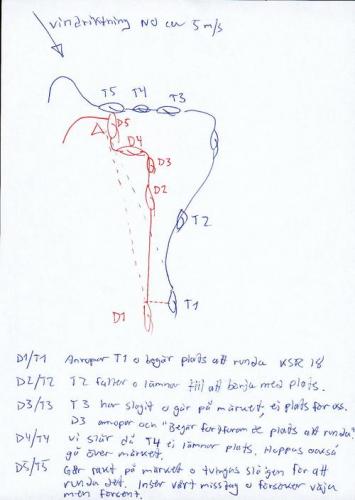 vindriktning NO ca 5 m/s
T5 T4 T3
D5
D4
D3
D2
T2
D1
T1
D1/T1 Anropar T1 o begär plats att runda KSR 18
D2/T2 T2 faller o lämnar till att börja med plats.
D3/T3 T3 har slagit o går på märket, ej plats för oss.
D3 anropar och "Begär fortfarande plats att runda"
D4/T4 vi slår då T4 ej lämnar plats. Hoppas också
gå över märket.
D5/T5 Går rakt på märket o tvingas slå igen för att
runda det. Inser vårt misstag o försöker väja
men försent.